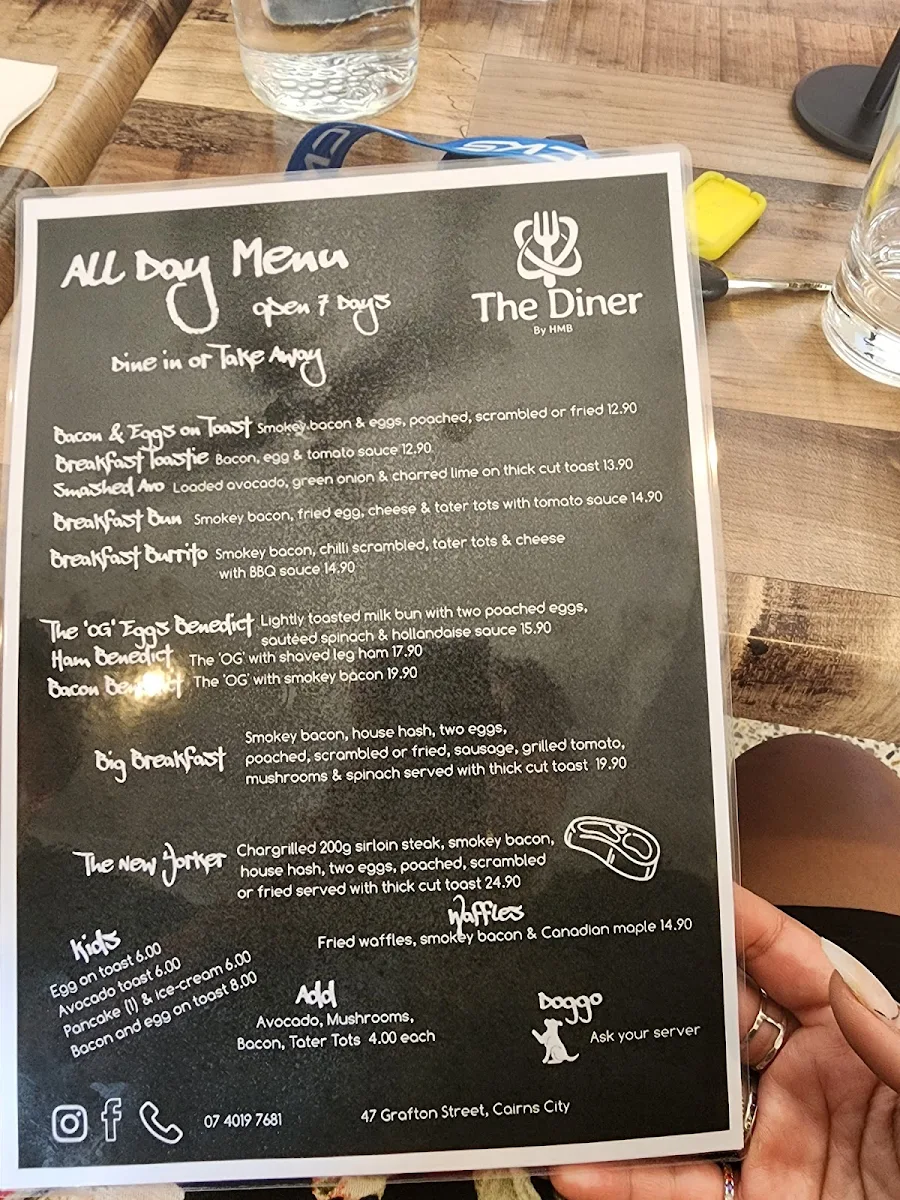 All Day Menu
open 7 Days
Dine in or Take Away
The Diner
By HMB
Bacon & Eggs on Toast Smokey bacon & eggs, poached, scrambled or fried 12.90
Breakfast Toastie Bacon, egg & tomato sauce 12.90
Smashed Avo Loaded avocado, green onion & charred lime on thick cut toast 13.90
Breakfast Bun Smokey bacon, fried egg, cheese & tater tots with tomato sauce 14.90
Breakfast Burrito Smokey bacon, chilli scrambled, tater tots & cheese
with BBQ sauce 14.90
The 'OG' Eggs Benedict Lightly toasted milk bun with two poached eggs,
sautéed spinach & hollandaise sauce 15.90
Ham Benedict The 'OG' with shaved leg ham 17.90
Bacon Benedict The 'OG' with smokey bacon 19.90
Big Breakfast Smokey bacon, house hash, two eggs,
poached, scrambled or fried, sausage, grilled tomato,
mushrooms & spinach served with thick cut toast 19.90
The New Yorker Chargrilled 200g sirloin steak, smokey bacon,
house hash, two eggs, poached, scrambled
or fried served with thick cut toast 24.90
Waffles
Fried waffles, smokey bacon & Canadian maple 14.90
Kids
Egg on toast 6.00
Avocado toast 6.00
Pancake (1) & ice-cream 6.00
Bacon and egg on toast 8.00
Add
Avocado, Mushrooms,
Bacon, Tater Tots 4.00 each
Doggo
Ask your server
07 4019 7681
47 Grafton Street, Cairns City